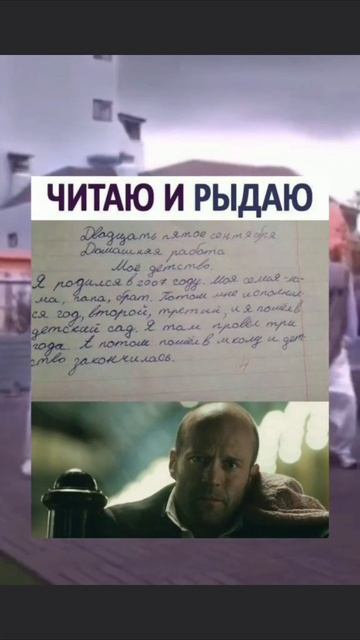 ЧИТАЮ И РЫДАЮ
Двадцать пятое сентября
Домашняя работа
Моё детство.
Я родился в 2007 году. Моя семья-ма-
ма, папа, брат. Потом мне исполнил-
ся год, второй, третий, и я пошёл в
детский сад. Я там провёл три
года. А потом пошёл в школу и дет-
ство закончилось.